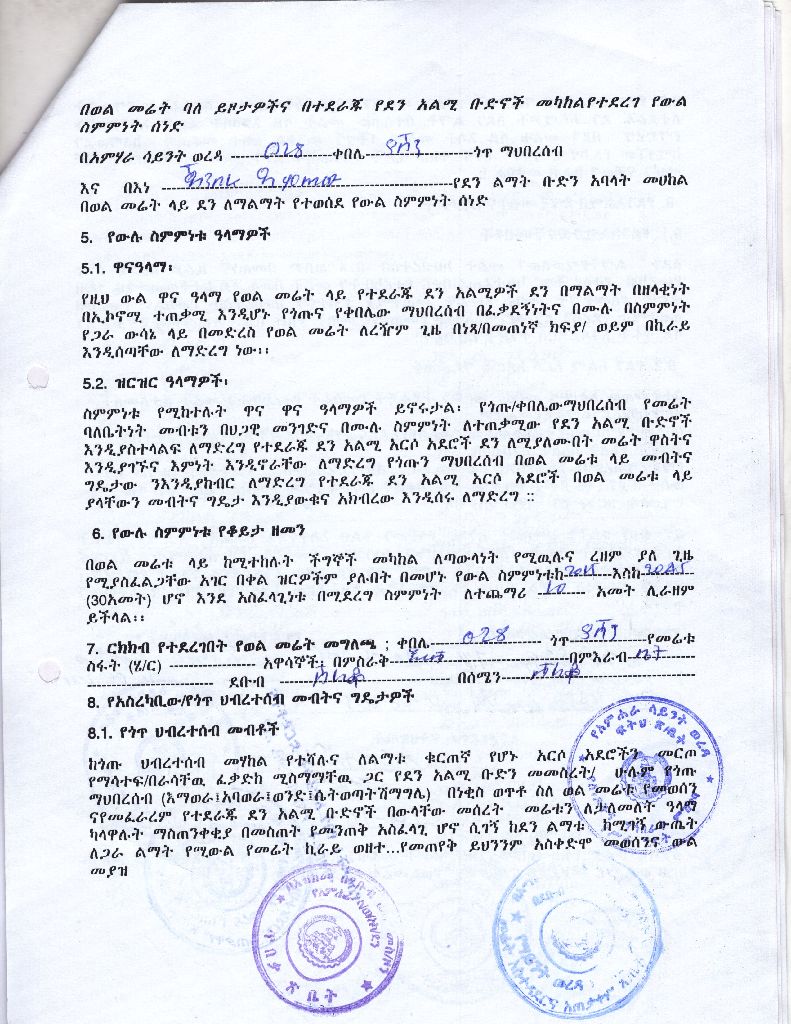 በወል መሬት ባለ ይዞታዎችና በተደራጁ የደን አልሚ ቡድኖች መካከልየተደረገ የውል
ስምምነት ሰነድ
በአምሃራ ሳይንት ወረዳ ----------------028----------ቀበሌ-------------------------------ጎጥ ማህበረሰብ
እና በእነ ----------------------------------------------------የደን ልማት ቡድን አባላት መሀከል
በወል መሬት ላይ ደን ለማልማት የተወሰደ የውል ስምምነት ሰነድ
5. የውሉ ስምምነቱ ዓላማዎች
5.1. ዋናዓላማ፡
የዚህ ውል ዋና ዓላማ የወል መሬት ላይ የተደራጁ ደን አልሚዎች ደን በማልማት በዘላቂነት
በኢኮኖሚ ተጠቃሚ እንዲሆኑ የጎጡና የቀበሌው ማህበረሰብ በፈቃደኝነትና በሙሉ በስምምነት
የጋራ ውሳኔ ላይ በመድረስ የወል መሬት ለረዥም ጊዜ በነጻ/በመጠነኛ ክፍያ/ ወይም በኪራይ
እንዲሰጣቸው ለማድረግ ነው፡፡
5.2. ዝርዝር ዓላማዎች፡
ስምምነቱ የሚከተሉት ዋና ዋና ዓላማዎች ይኖሩታል፡ የጎጡ/ቀበሌውማህበረሰብ የመሬት
ባለቤትነት መብቱን በህጋዊ መንገድና በሙሉ ስምምነት ለተጠቃሚው የደን አልሚ ቡድኖች
እንዲያስተላልፍ ለማድረግ የተደራጁ ደን አልሚ አርሶ አደሮች ደን ለሚያለሙበት መሬት ዋስትና
እንዲያገኙና እምነት እንዲኖራቸው ለማድረግ የጎጡን ማህበረሰብ በወል መሬቱ ላይ መብትና
ግዴታው ንእንዲያከብር ለማድረግ የተደራጁ ደን አልሚ አርሶ አደሮች በወል መሬቱ ላይ
ያላቸውን መብትና ግዴታ እንዲያውቁና አክብረው እንዲሰሩ ለማድረግ ::
6. የውሉ ስምምነቱ የቆይታ ዘመን
በወል መሬቱ ላይ ከሚተከሉት ችግኞች መካከል ለጣውላነት የሚዉሉና ረዘም ያለ ጊዜ
የሚያስፈልጋቸው አገር በቀል ዝርዎችም ያሉበት በመሆኑ የውል ስምምነቱከ-2015---እስከ-2045--
(30አመት) ሆኖ እንደ አስፈላጊነቱ በሚደረግ ስምምነት ለተጨማሪ --10---- አመት ሊራዘም
ይችላል፡፡
7. ርክክብ የተደረገበት የወል መሬት መግለጫ ; ቀበሌ------028---------- ጎጥ -----------የመሬቱ
ስፋት (ሄ/ር) ------------------ አዋሳኞች፤ በምስራቅ---------------------------------በምእራብ--------------
------------------------- ደቡብ -------------------------------- በሰሜን--------------------------------
8. የአስረካቢው/የጎጥ ህብረተሰብ መብትና ግዴታዎች
8.1. የጎጥ ህብረተሰብ መብቶች
ከጎጡ ህብረተሰብ መሃከል የተሻሉና ለልማቱ ቁርጠኛ የሆኑ አርሶ አደሮችን መርጦ
የማሳተፍ/በራሳቸዉ ፈቃድከ ሚስማማቸዉ ጋር የደን አልሚ ቡድን መመስረት/ ሁሉም የጎጡ
ማህበረሰብ (እማወራ፤አባወራ፤ወንድ፤ሴትወጣትሽማግሌ) በነቂስ ወጥቶ ስለ ወል መሬቱ የመወሰን
ናየመፈራረም የተደራጁ ደን አልሚ ቡድኖች በውላቸው መሰረት መሬቱን ለታለመለት ዓላማ
ካላዋሉት ማስጠንቀቂያ በመስጠት የመንጠቅ አስፈላጊ ሆኖ ሲገኝ ከደን ልማቱ ከሚገኝ ውጤት
ለጋራ ልማት የሚውል የመሬት ኪራይ ወዘተ...የመጠየቅ ይህንንም አስቀድሞ መወሰንና ውል
መያዝ